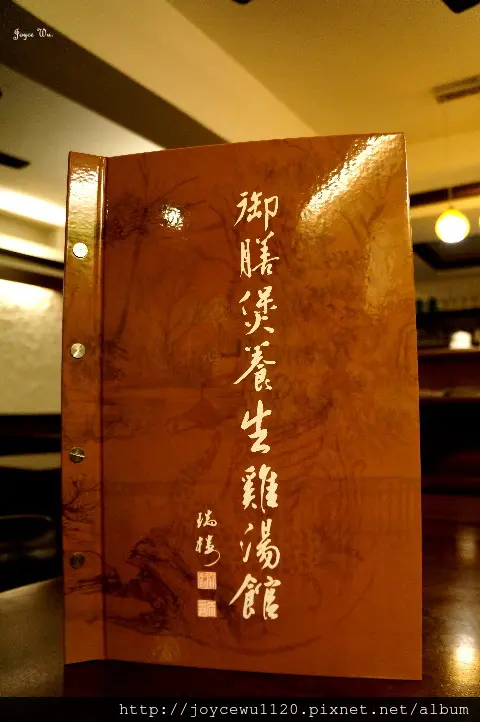 Joyce Wu.
御膳煲養生雞湯館
瑞樓
http://joycewu1120.pixnet.net/album